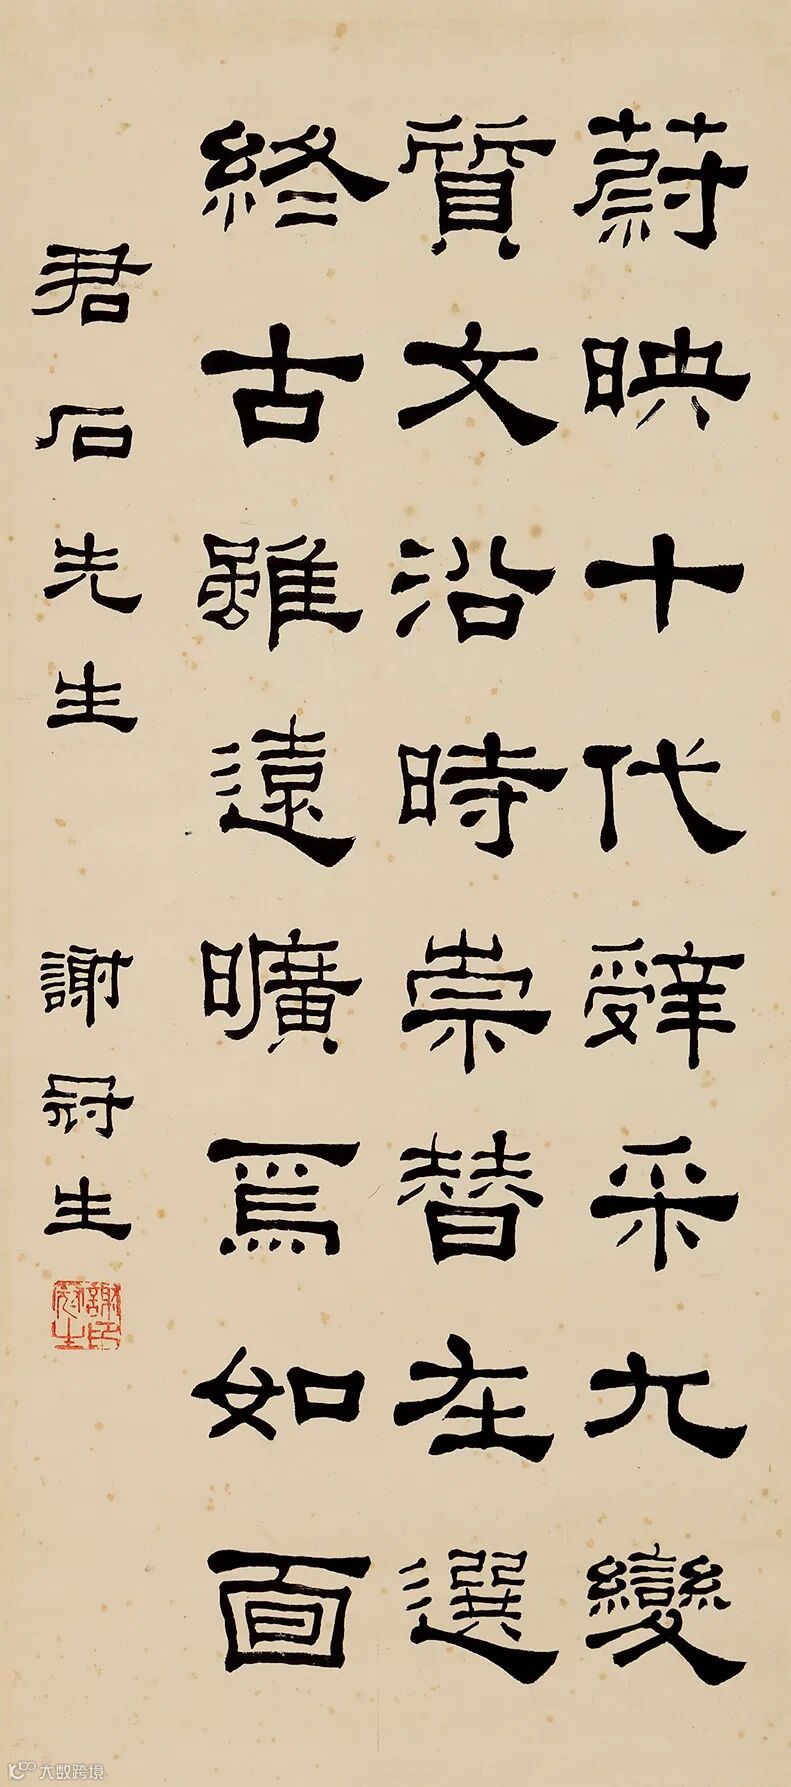 蔚映十代辤采九變
質文沿時崇替在選
終古雖遠曠焉如面
君石先生 謝冠生
謝印冠生
大数跨境